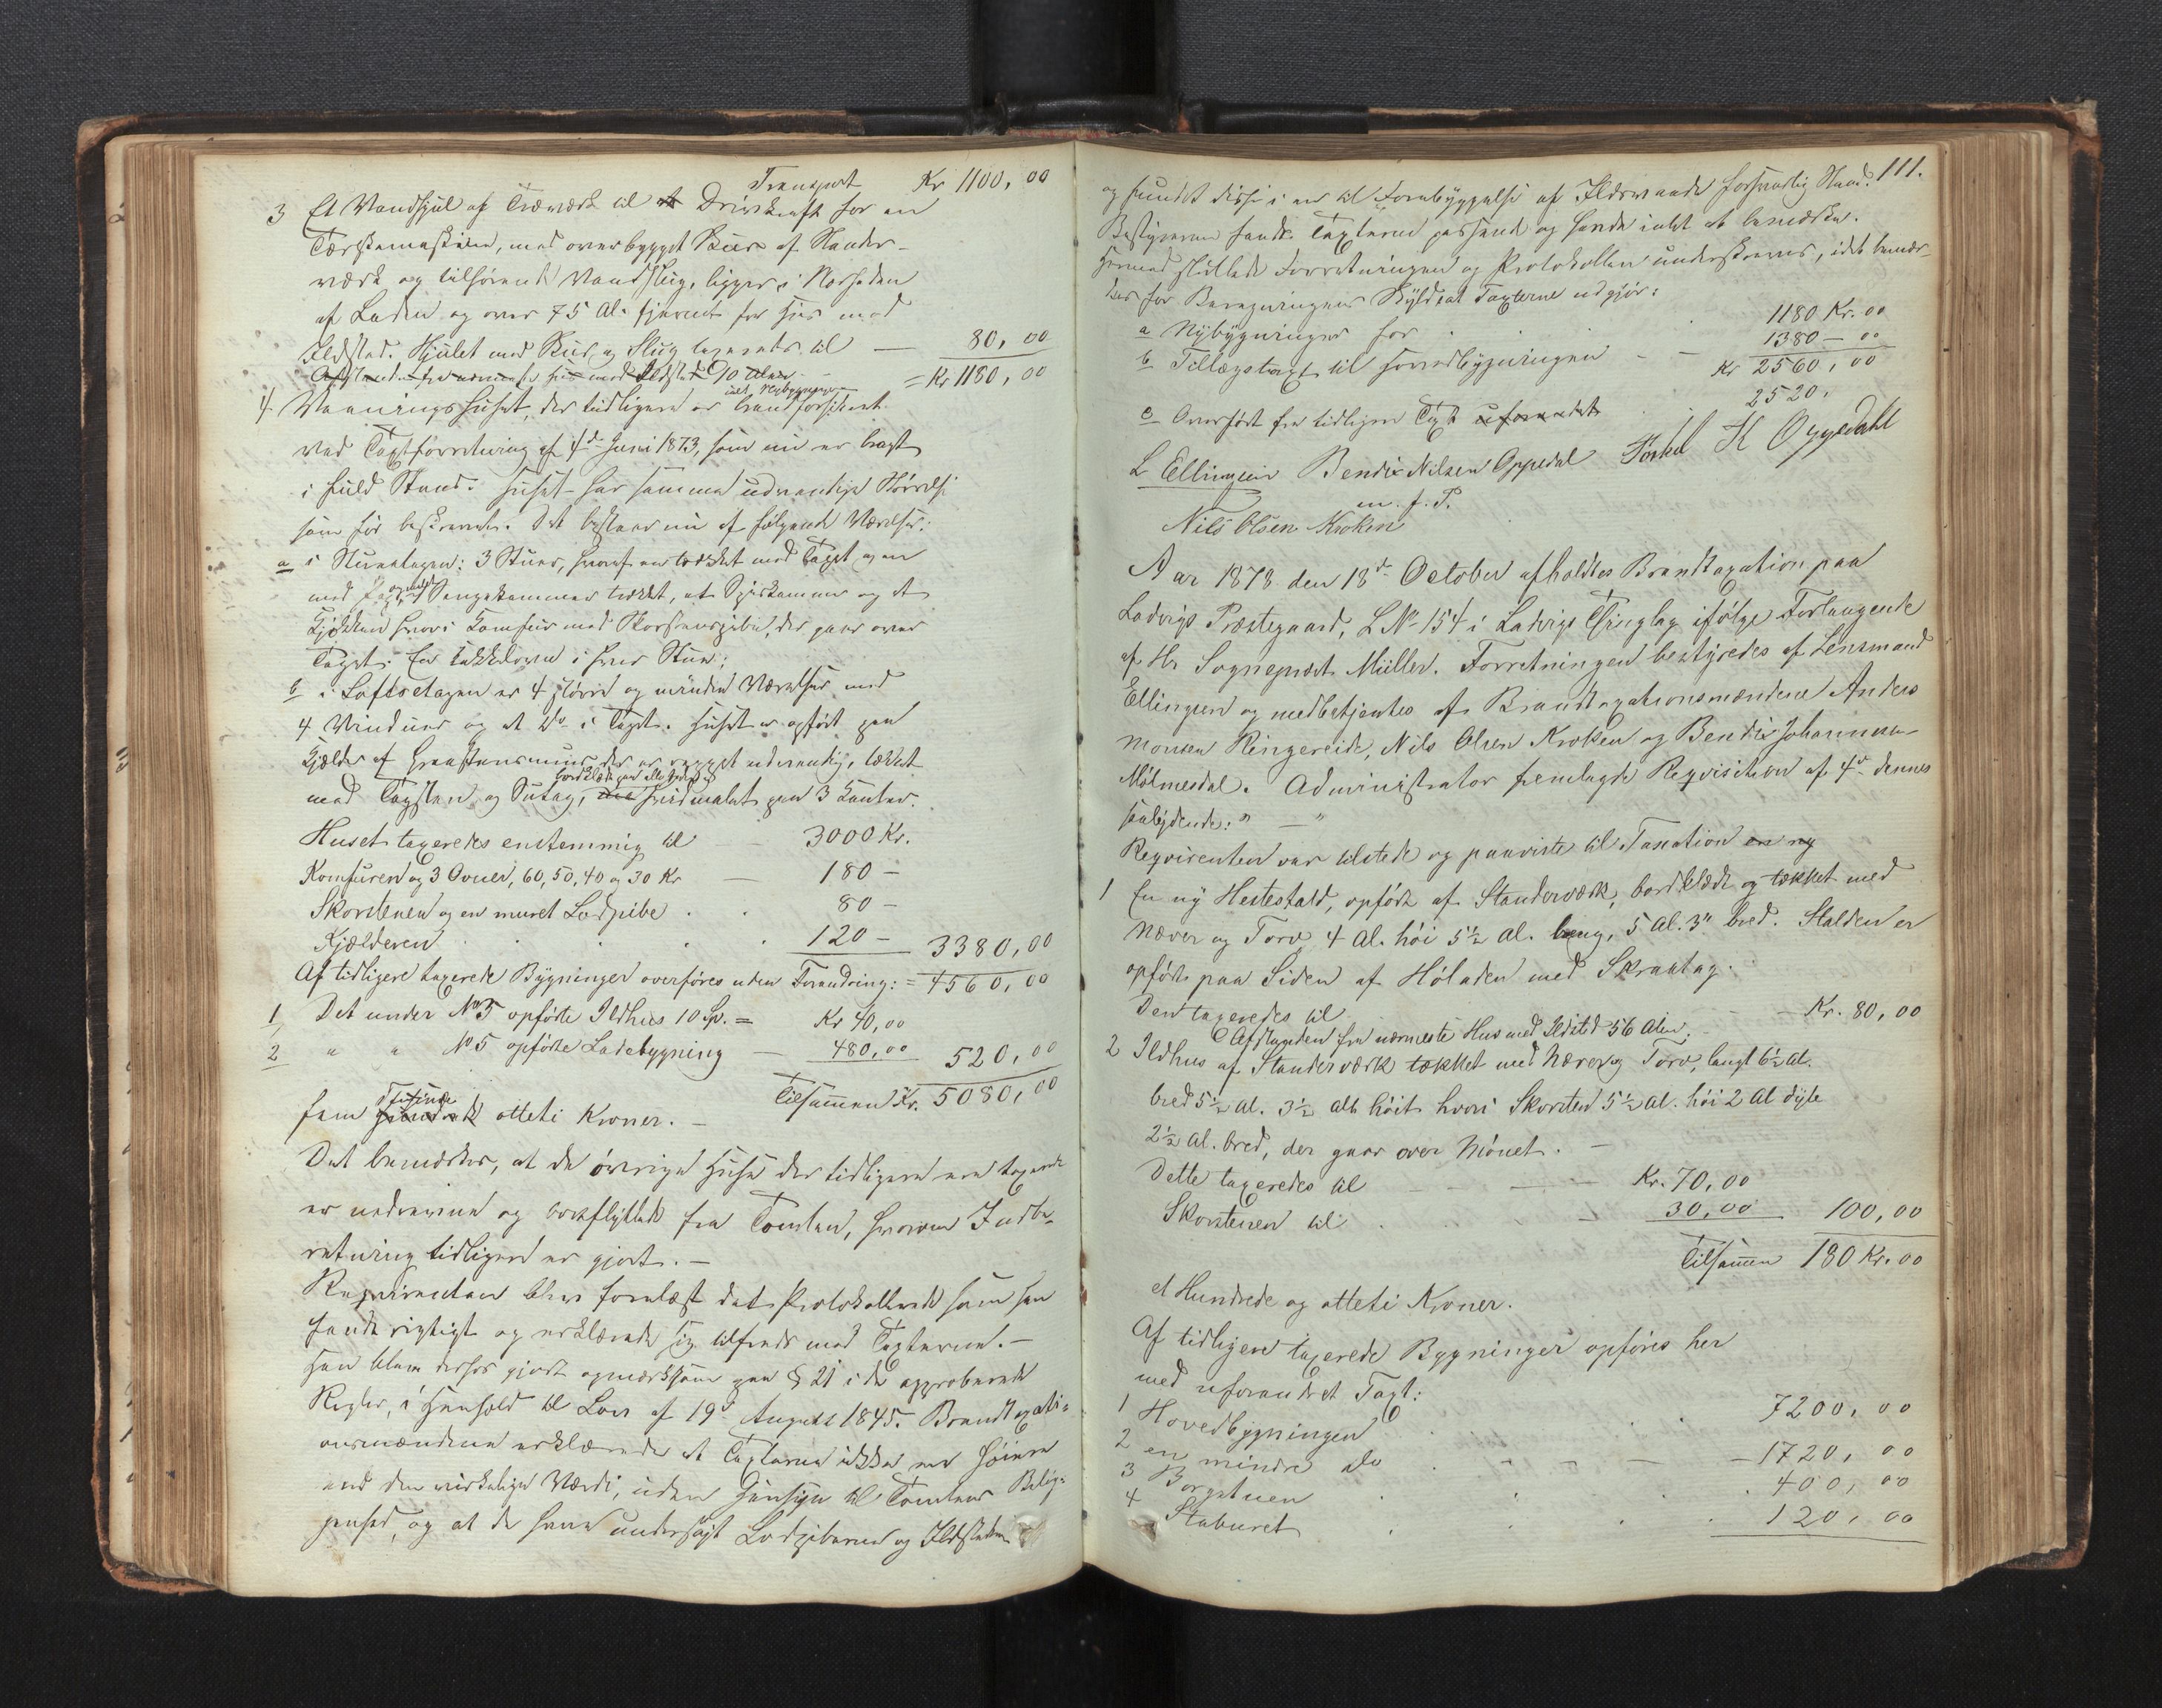 Transport Kr 1100,00
3 Et Vandhjul af Træværk til et Drivkraft for en
Tærskemaskine, med overbygget Skur af Stander-
værk og tilhørende Vandslug, ligger i Norsiden
af Laden og over 75 Al. fjernet fra Huus med
Ildsted. Hjulet med Skur og Slug taxeredes til — 80,00
Afstanden fra nærmeste Huus med Ildsted 90 Alen = Kr 1180,00
4 Vaaningshuset, der tidligere er brandforsikret
ved Taxtforretning af 4de Juni 1873, som nu er bragt
i fuld Stand. Huset har samme udvendige Størrelse
som før beskrevet. Det bestaar nu af følgende Værelser:
a i Stueetagen: 3 Stuer, hvoraf en trækket med Tapet og en
med Sengekammer trækket, et Spiskammer og et
Kjøkken hvori Komfur med Skorstenspibe, der gaar over
Taget. En Kakkelovn i hver Stue;
b i Loftsetagen er 4 større og mindre Værelser med
4 Vinduer og et do i Taget. Huset er opført paa
Kjælder af Graastensmuur, der er udvendig, tækket
med Tagsten og Sutag, hvidmalet paa 3 Kanter.
Huset taxeredes enstemmig til — 3000 Kr.
Komfuren og 3 Ovner, 60, 50, 40 og 30 Kr — 180 —
Skorstenen og en muret Lodpibe . . 80 —
Kjælderen . . . . 120 — 3380,00
Af tidligere taxerede Bygninger overføres uden Forandring: = 4560,00
1 Det under No 3 opførte Ildhus 10 Sp. = Kr 40,00
2 " " No 5 opførte Ladebygning — 480,00 520,00
Tilsammen Kr. 5080,00
fem Tusinde otteti Kroner. —
Det bemærkes, at de øvrige Huse der tidligere ere taxerede
er nedrevne og bortflyttede fra Tomten, hvorom Indbe-
retning tidligere er gjort. —
Rekvirenten blev forelæst det Protokollerede som han
fandt rigtigt og erklærede sig tilfreds med Taxterne. —
Han blev derhos gjort opmærksom paa § 21 i de approberede
Regler, i Henhold til Lov af 19de August 1845. Brandtaxati-
onsmændene erklærede at Taxterne ikke ere høiere
end den virkelige Værdi, uden Hensyn til Tomtens Belig-
genhed, og at de have undersøgt Lodpiberne og Ildstederne
111.
og fundet disse i en til Forebyggelse af Ildsvaade forsvarlig Stand.
Bestyreren fandt Taxterne passende og havde intet at bemærke.
Hermed sluttede Forretningen og Protokollen underskreves, idet bemær-
kes for Beregningens Skyld at Taxterne udgjør:
a Nybygninger for . . . 1180 Kr. 00
b Tillægstaxt til Hovedbygningen — — 1380 — 00
Kr 2560,00
c Overført fra tidligere Taxt uforandret . . 2520.
L Ellingsen Bendix Nilsen Oppedal Torkel H Oppedahl
m. f. P.
Nils Olsen Kroken
Aar 1878 den 18de October afholdtes Brandtaxation paa
Ladvigs Præstegaard, L No 154 i Ladvigs Thinglag ifølge Forlangende
af Hr Sogneprest Müller. Forretningen bestyredes af Lensmand
Ellingsen og medbetjentes af Brandtaxationsmændene Anders
Monsen Ringereide, Nils Olsen Kroken og Bendix Johannesen
Mölmesdal. Administrator fremlagde Reqvisition af 4de dennes
saalydende: " — "
Reqvirenten var tilstede og paaviste til Taxation en ny
1 En ny Hestestald, opført af Standerværk, bordklædt og tækket med
Næver og Torv, 4 Al. høi 5½ Al. lang, 5 Al. 3" bred. Stalden er
opført paa Siden af Höladen med Skraatag.
Den taxeredes til — — Kr. 80,00
Afstanden fra nærmeste Hus med Ildsted 56 Alen.
2 Ildhus af Standerværk tækket med Næver og Torv, langt 6½ Al.
bred 5½ Al. 3½ Al. høit hvori Skorsten 5½ Al. høi 2 Al dyb
2½ Al. bred, der gaar over Mönet. —
Dette taxeredes til — — Kr. 70,00
Skorstenen til . . . — 30,00 100,00
Tilsammen 180 Kr. 00
et Hundrede og otteti Kroner.
Af tidligere taxerede Bygninger opføres her
med uforandret Taxt:
1 Hovedbygningen . . . 7200,00
2 en mindre do . — — — 1720,00
3 Borgstuen . . . 400,00
4 Staburet . . . . 120,00